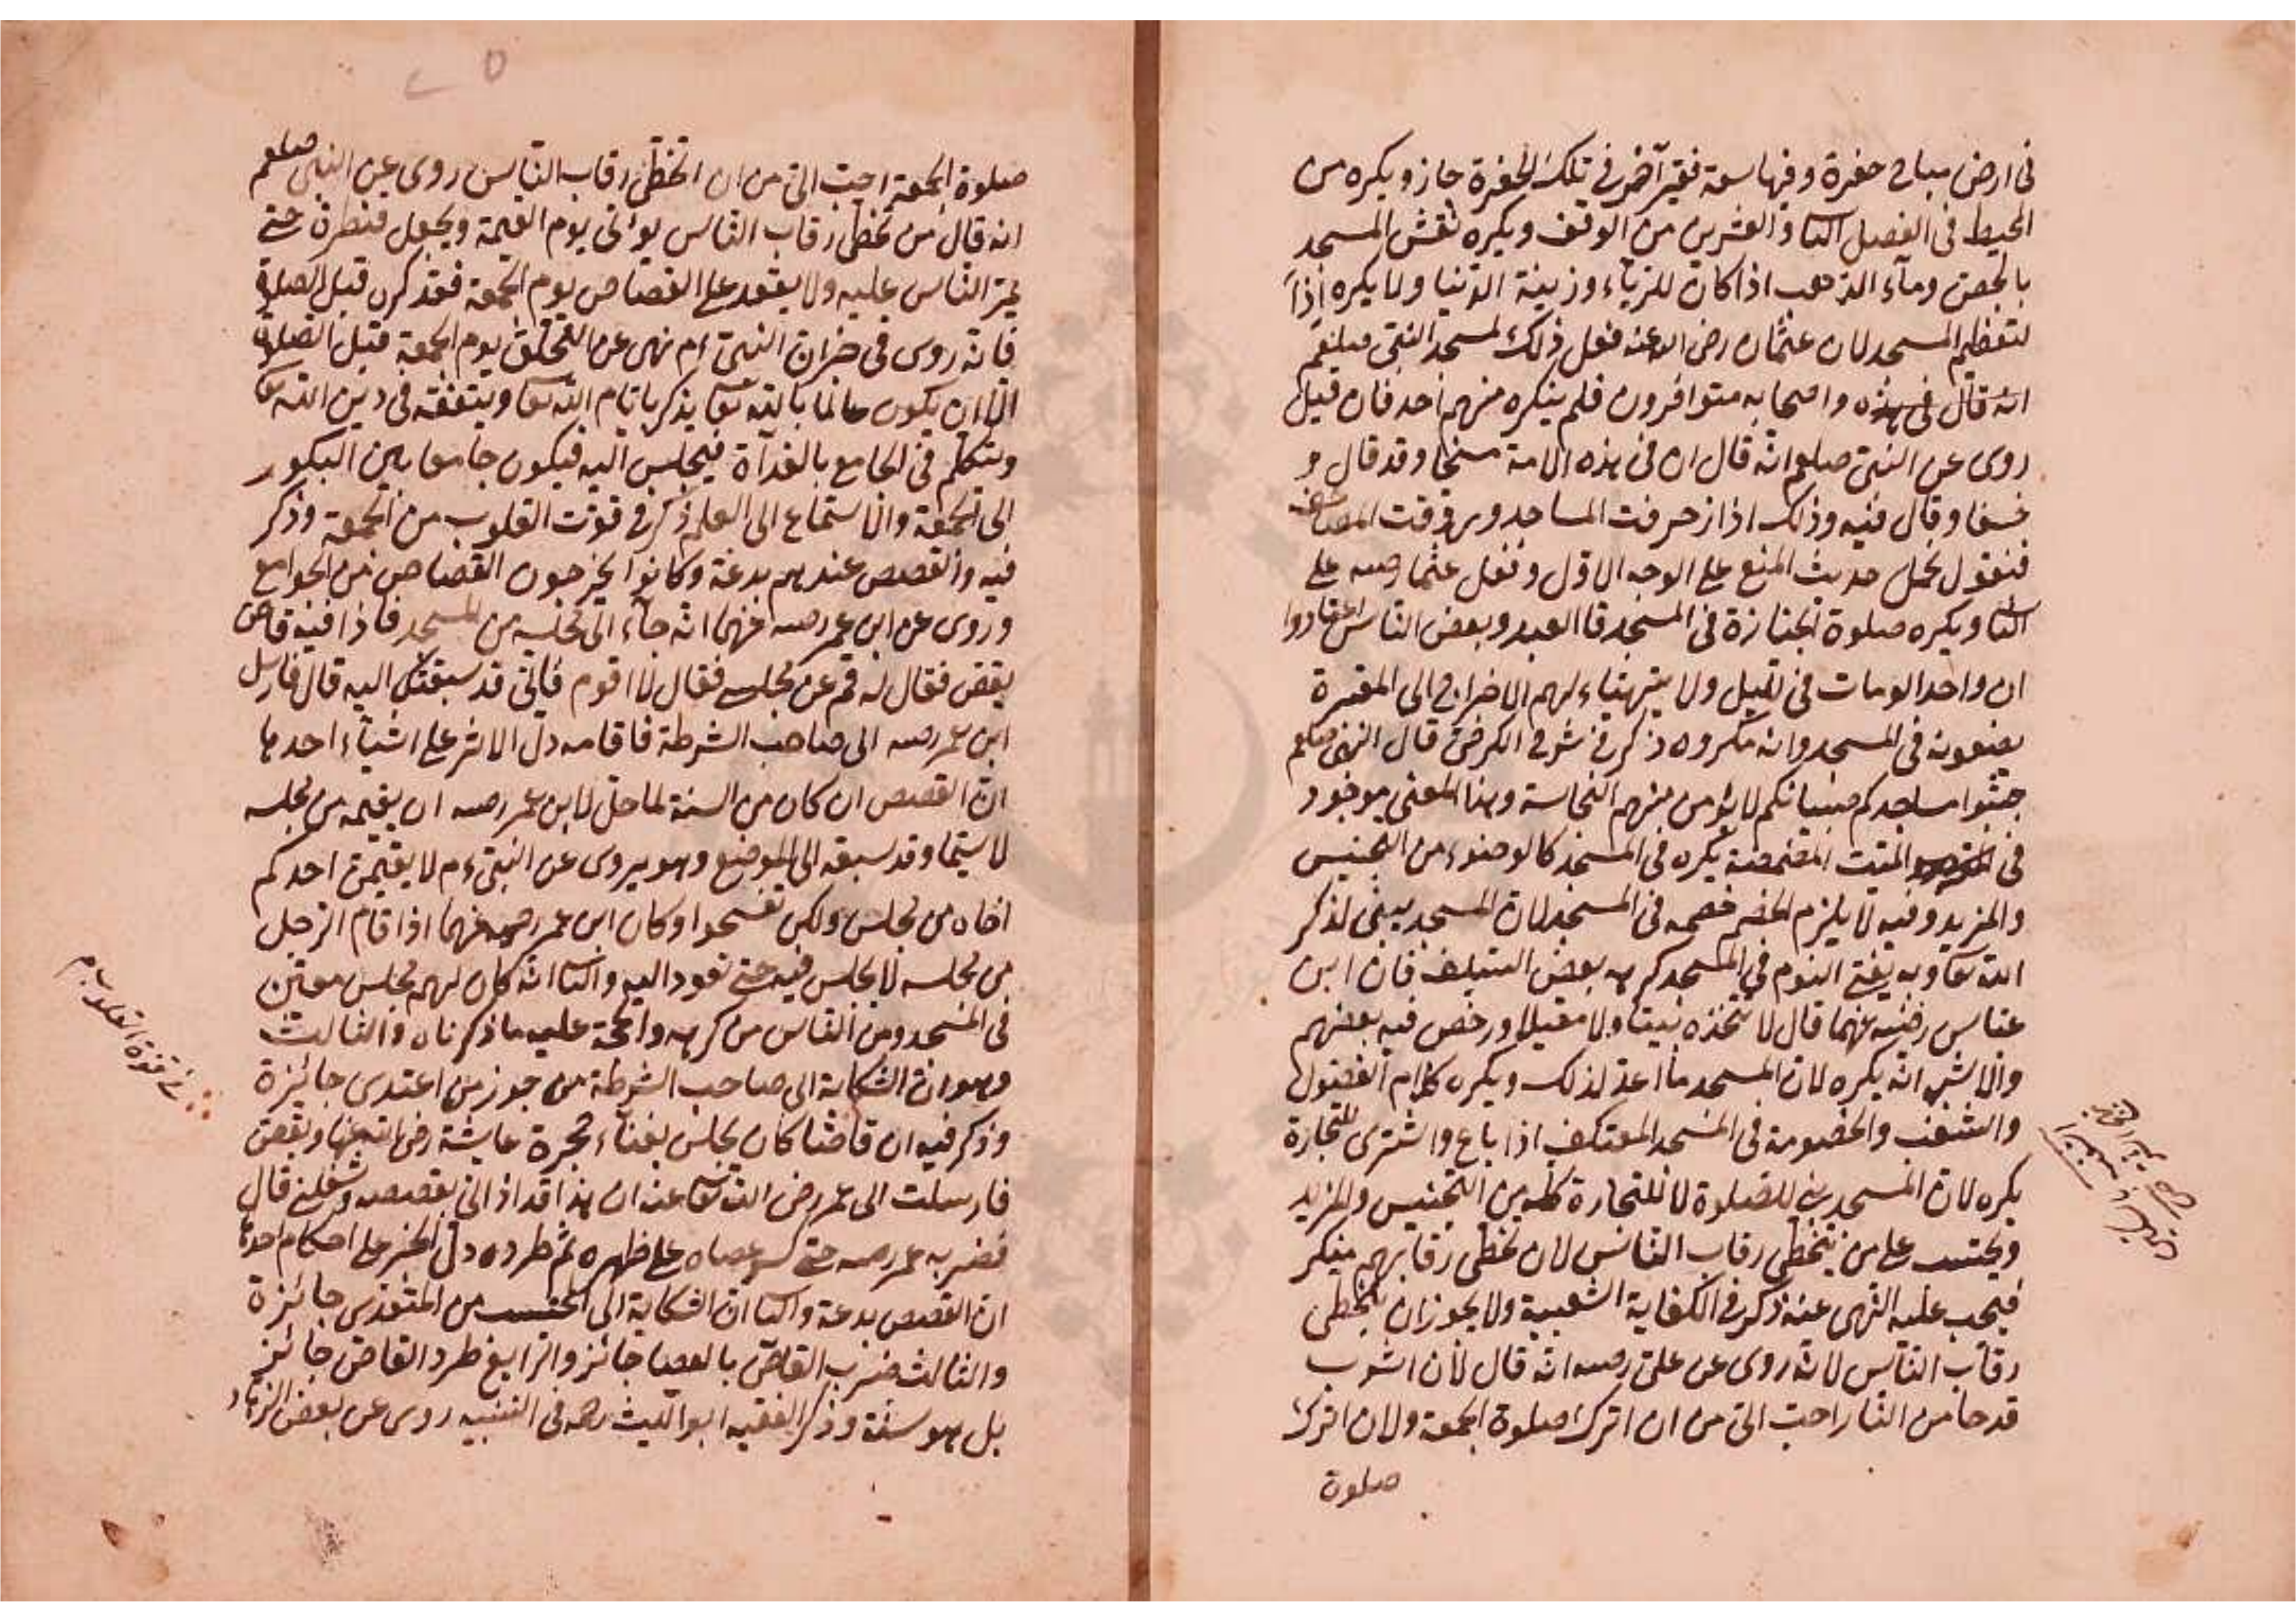 في ارض مباح حفرة وفيها سعة فقبر آخر في تلك الحفرة جاز ويكره من
المحيط في الفصل الثا والعشرين من الوقف ويكره نقش المسجد
بالجص وماء الذهب اذا كان للرياء وزينة الدنيا ولا يكره اذا
لتعظيم المسجد لان عثمان رضى الله عنه فعل ذلك لمسجد النبى صلعم
انه قال في هذه واصحابه متوافرون فلم ينكره منهم احد فان قيل
روى عن النبى صلعم انه قال ان في هذه الامة مسخا وقد قال و
خسفا وقال فيه وذلك اذا زخرفت المساجد وزوقت المصاحف
فنقول يحمل حديث المنع على الوجه الاول وفعل عثما رضه على
الثا ويكره صلوة الجنازة في المسجد قا العبد وبعض الناس اعتادوا
ان واحدا لومات في الليل ولا يتهياء لهم الاخراج الى المقبرة
يضعونه في المسجد وانه مكروه ذكر في شرح الكرخى قال النبى صلعم
جنبوا مساجدكم صبيانكم لا يؤمن منهم النجاسة وهذا المعنى موجود
في الميت المضمضة يكره في المسجد كالوضوء من التجنيس
والمزيد وفيه لا يلزم الخصم خصمه في المسجد لان المسجد يبنى لذكر
الله تعا وبه يفتى النوم في المسجد كرهه بعض السلف فان ابن
عباس رضى عنهما قال لا تتخذه بيتا ولا مقيلا ورخص فيه بعضهم
والاشبه انه يكره لان المسجد ما اعد لذلك ويكره كلام الفضول
والشغب والخصومة في المسجد المعتكف اذا باع واشترى للتجارة
يكره لان المسجد بنى للصلوة لا للتجارة كله من التجنيس والمزيد
ويحتسب على من يتخطى رقاب الناس لان تخطى رقابهم منكر
فيجب عليه النهى عنه ذكر في الكفاية الشعبية ولا يجوز ان يتخطى
رقاب الناس لانه روى عن على رضه انه قال لأن اشرب
قدحا من النار احب الى من ان اترك صلوة الجمعة ولان اترك
صلوة
صلوة الجمعة احب الى من ان اتخطى رقاب الناس روى عن النبى صلعم
انه قال من تخطى رقاب الناس يؤتى يوم القيمة ويجعل قنطرة حتى
يمر الناس عليه ولا يقعد على القصاص يوم الجمعة فقد كره قبل الصلوة
فانه روى في خبر ان النبى ءم نهى عن التحلق يوم الجمعة قبل الصلوة
الا ان يكون عالما بالله تعا يذكر بايام الله تعا ويتفقه في دين الله تعا
ويتكلم في الجامع بالغداة فيجلس اليه فيكون جامعا بين البكور
الى الجمعة والاستماع الى العلم ذكر في قوت القلوب من الجمعة وذكر
فيه والقصص عندهم بدعة وكانوا يخرجون القصاص من الجوامع
وروى عن ابن عمر رضه عنهما انه جاء الى مجلسه من المسجد فاذا فيه قاص
يقص فقال له قم عن مجلسى فقال لا اقوم فانى قد سبقتك اليه قال فارسل
ابن عمر رضه الى صاحب الشرطة فاقامه دل الاثر على اشياء احدها
ان القصص ان كان من السنة لما حل لابن عمر رضه ان يقيمه من مجلسه
لا سيما وقد سبقه الى الموضع وهو يروى عن النبى ءم لا يقيمن احدكم
اخاه من مجلس ولكن تفسحوا وكان ابن عمر رضه عنهما اذا قام الرجل
من مجلسه لا يجلس فيه حتى تعود اليه والثا انه كان لهم مجلس معين
في المسجد ومن الناس من كرهه والحجة عليه ما ذكرناه والثالث
وهو ان الشكاية الى صاحب الشرطة من جوز من اعتدى جائزة
وذكر فيه ان قاصا كان يجلس بفناء حجرة عايشة رضى الله عنها ويقص
فارسلت الى عمر رضى الله تعا عنه ان هذا قد اذانى بقصصه وشغلنى قال
فضربه عمر رضه حتى كسر عصاه على ظهره ثم طرده دل الخبر على احكام احدها
ان القصص بدعة والثا ان الشكاية الى المحتسب من المتعدى جائزة
والثالث ضرب القاص بالعصا جائز والرابع طرد القاص جائز
بل هو سنة وذكر الفقيه ابو الليث رحمه في التنبيه روى عن بعض الزهاد